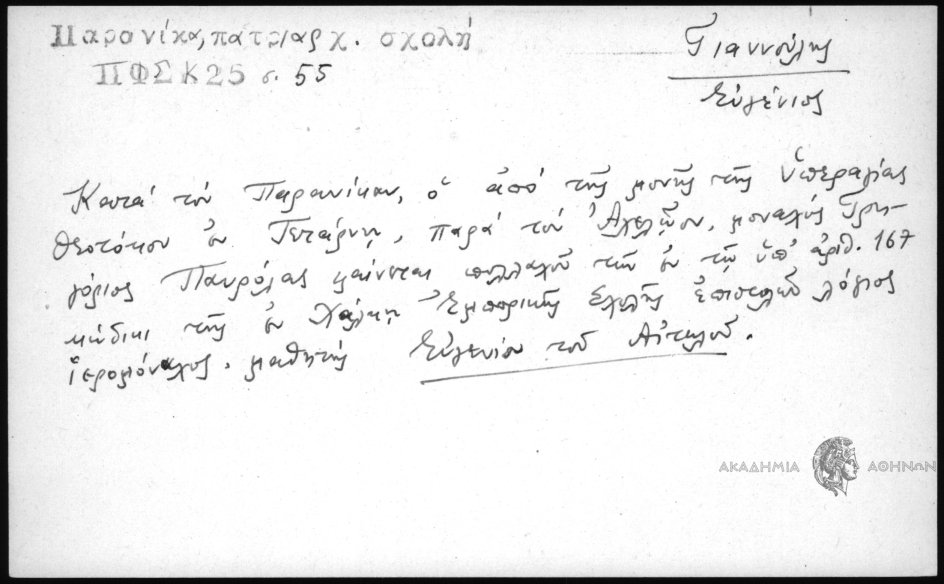 Παρανίκα, πατριαρχ. σχολή
ΠΦΣΚ25 σ. 55
Γιαννούλης
Εὐγένιος
Κατά τόν Παρανίκαν, ὁ ἀπό τῆς μονῆς τῆς Ὑπεραγίας
Θεοτόκου ἐν Γετάρνῃ, παρά τόν Ἀχελῷον, μοναχός Γρη-
γόριος φαίνεται πολλαχοῦ τῶν ἐν τῷ ὑπ' ἀριθ. 167
κώδικι τῆς ἐν Χάλκῃ Ἐμπορικῆς Σχολῆς ἐπιστολῶν λόγιος
ἱερομόναχος, μαθητής Εὐγενίου τοῦ Αἰτωλοῦ.
ΑΚΑΔΗΜΙΑ ΑΘΗΝΩΝ